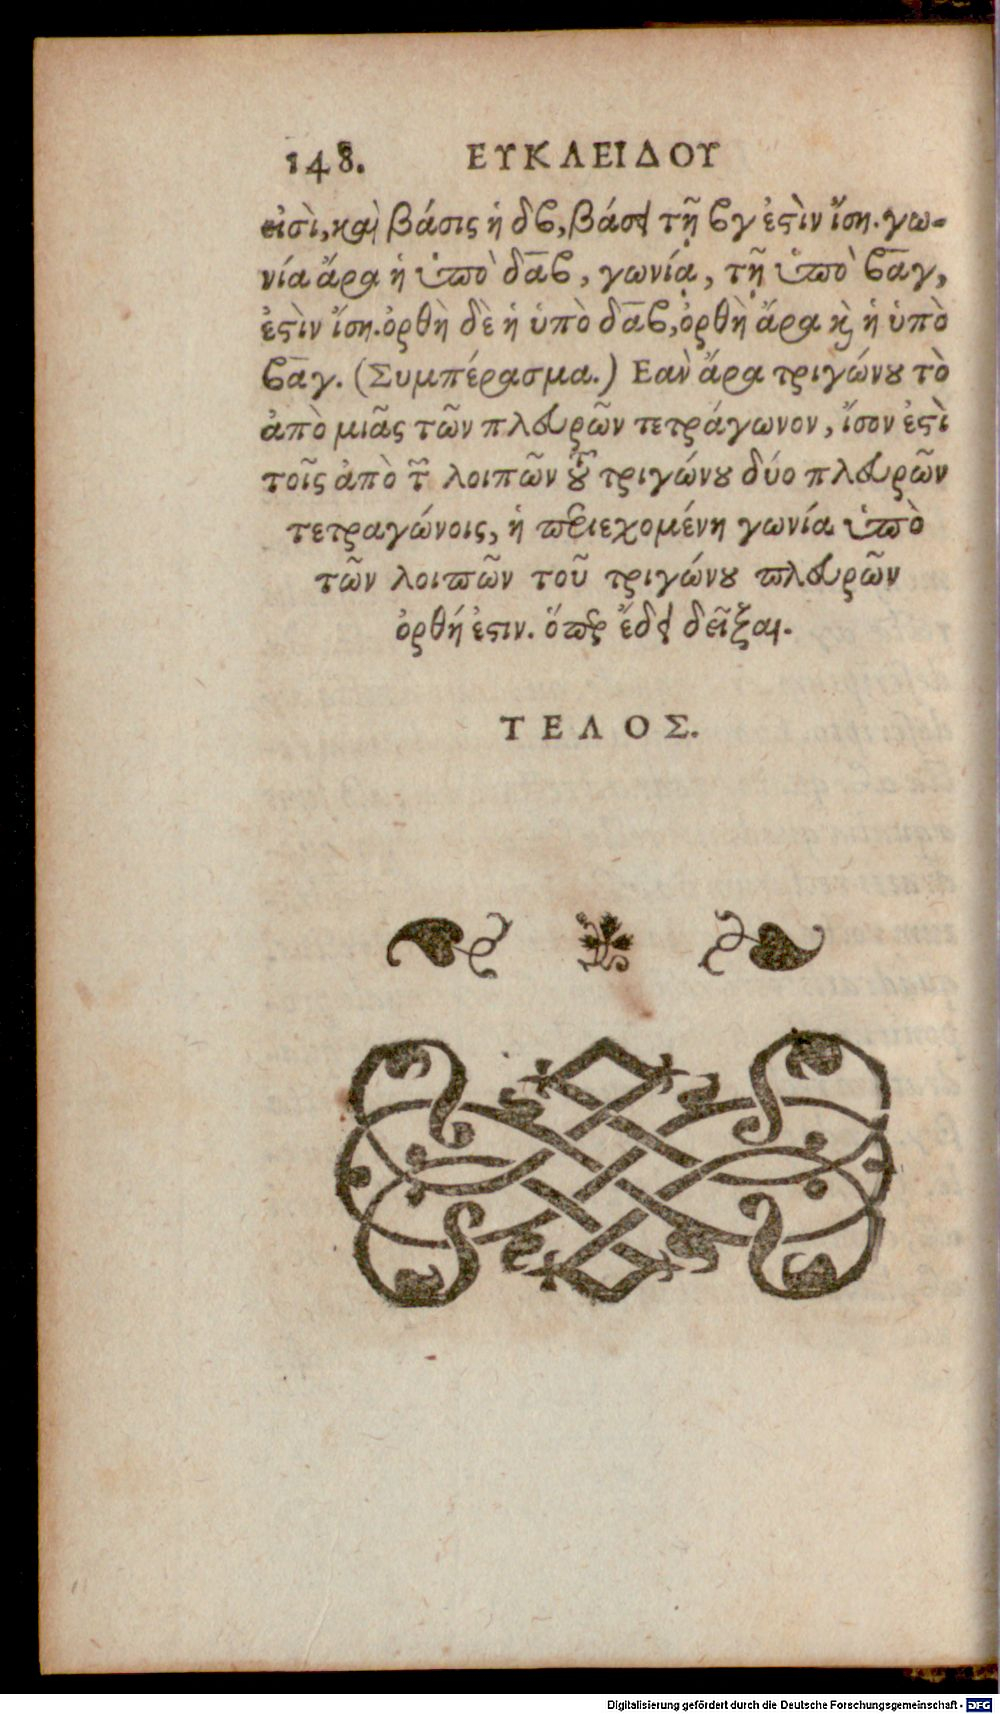 148. ΕΥΚΛΕΙΔΟΥ
εἰσὶ, καὶ βάσις ἡ δϐ, βάσει τῇ ϐγ ἐϛὶν ἴση. γω-
νία ἄρα ἡ ὑπὸ δα̅ϐ, γωνίᾳ, τῇ ὑπὸ ϐα̅γ,
ἐϛὶν ἴση. ὀρθὴ δὲ ἡ ὑπὸ δα̅ϐ, ὀρθὴ ἄρα κ̀ ἡ ὑπὸ
ϐα̅γ. (Συμπέρασμα.) Εαν ἄρα τριγώνȣ τὸ
ἀπὸ μιᾶς τῶν πλευρῶν τετράγωνον, ἴσον ἐϛὶ
τοῖς ἀπὸ τ͂ λοιπῶν τȣ͂ τριγώνȣ δύο πλευρῶν
τετραγώνοις, ἡ περιεχομένη γωνία ὑπὸ
τῶν λοιπῶν τοῦ τριγώνȣ πλευρῶν
ὀρθή ἐϛιν. ὅπερ ἔδει δεῖξαι.
ΤΕΛΟΣ.
Digitalisierung gefördert durch die Deutsche Forschungsgemeinschaft - DFG